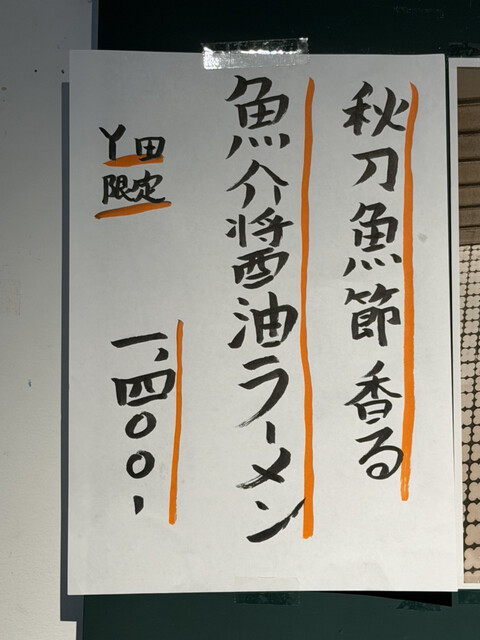 秋刀魚節香る
魚介醤油ラーメン
Y田
限定
一、四〇〇、